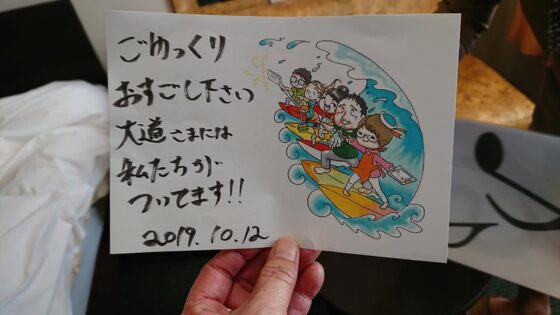 ごゆっくり
おすごし下さい
大道さまには
私たちが
ついてます!!
2019.10.12